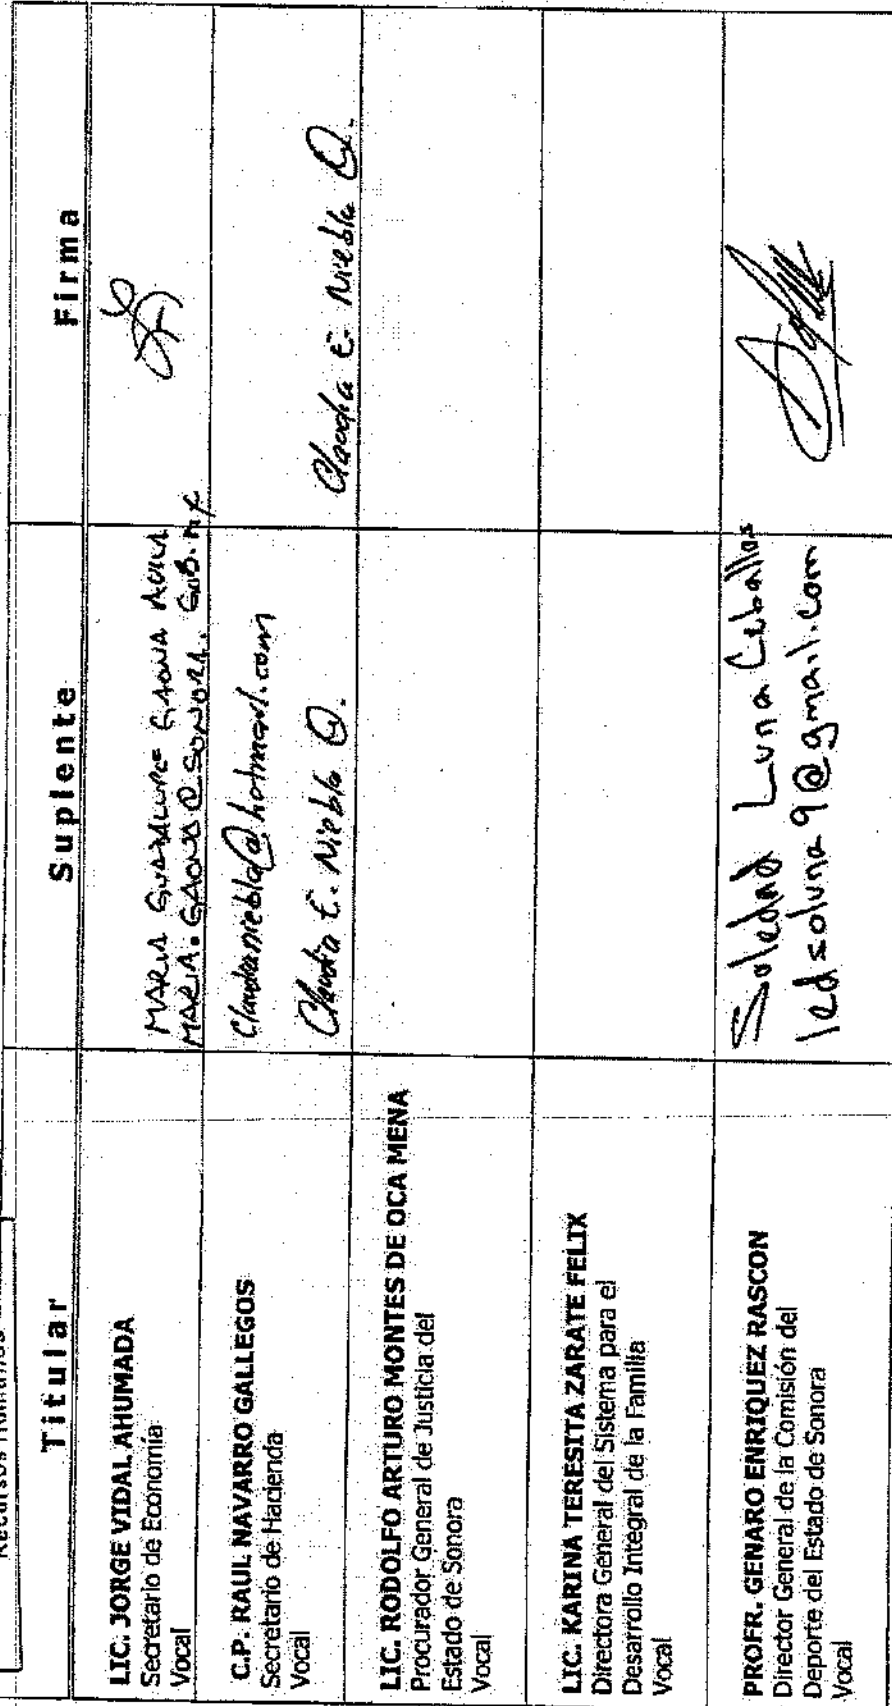 Recursos Humanos
Titular
Suplente
Firma
LIC. JORGE VIDAL AHUMADA
Secretario de Economía
Vocal
MARIA GUADALUPE GAONA AVILA
MARIA.GAONA@SONORA.GOB.MX
C.P. RAUL NAVARRO GALLEGOS
Secretario de Hacienda
Vocal
Claudianiebla@hotmail.com
Claudia E. Niebla Q.
Claudia E. Niebla Q.
LIC. RODOLFO ARTURO MONTES DE OCA MENA
Procurador General de Justicia del
Estado de Sonora
Vocal
LIC. KARINA TERESITA ZARATE FELIX
Directora General del Sistema para el
Desarrollo Integral de la Familia
Vocal
PROFR. GENARO ENRIQUEZ RASCON
Director General de la Comisión del
Deporte del Estado de Sonora
Vocal
Soledad Luna Ceballos
ledsoluna9@gmail.com